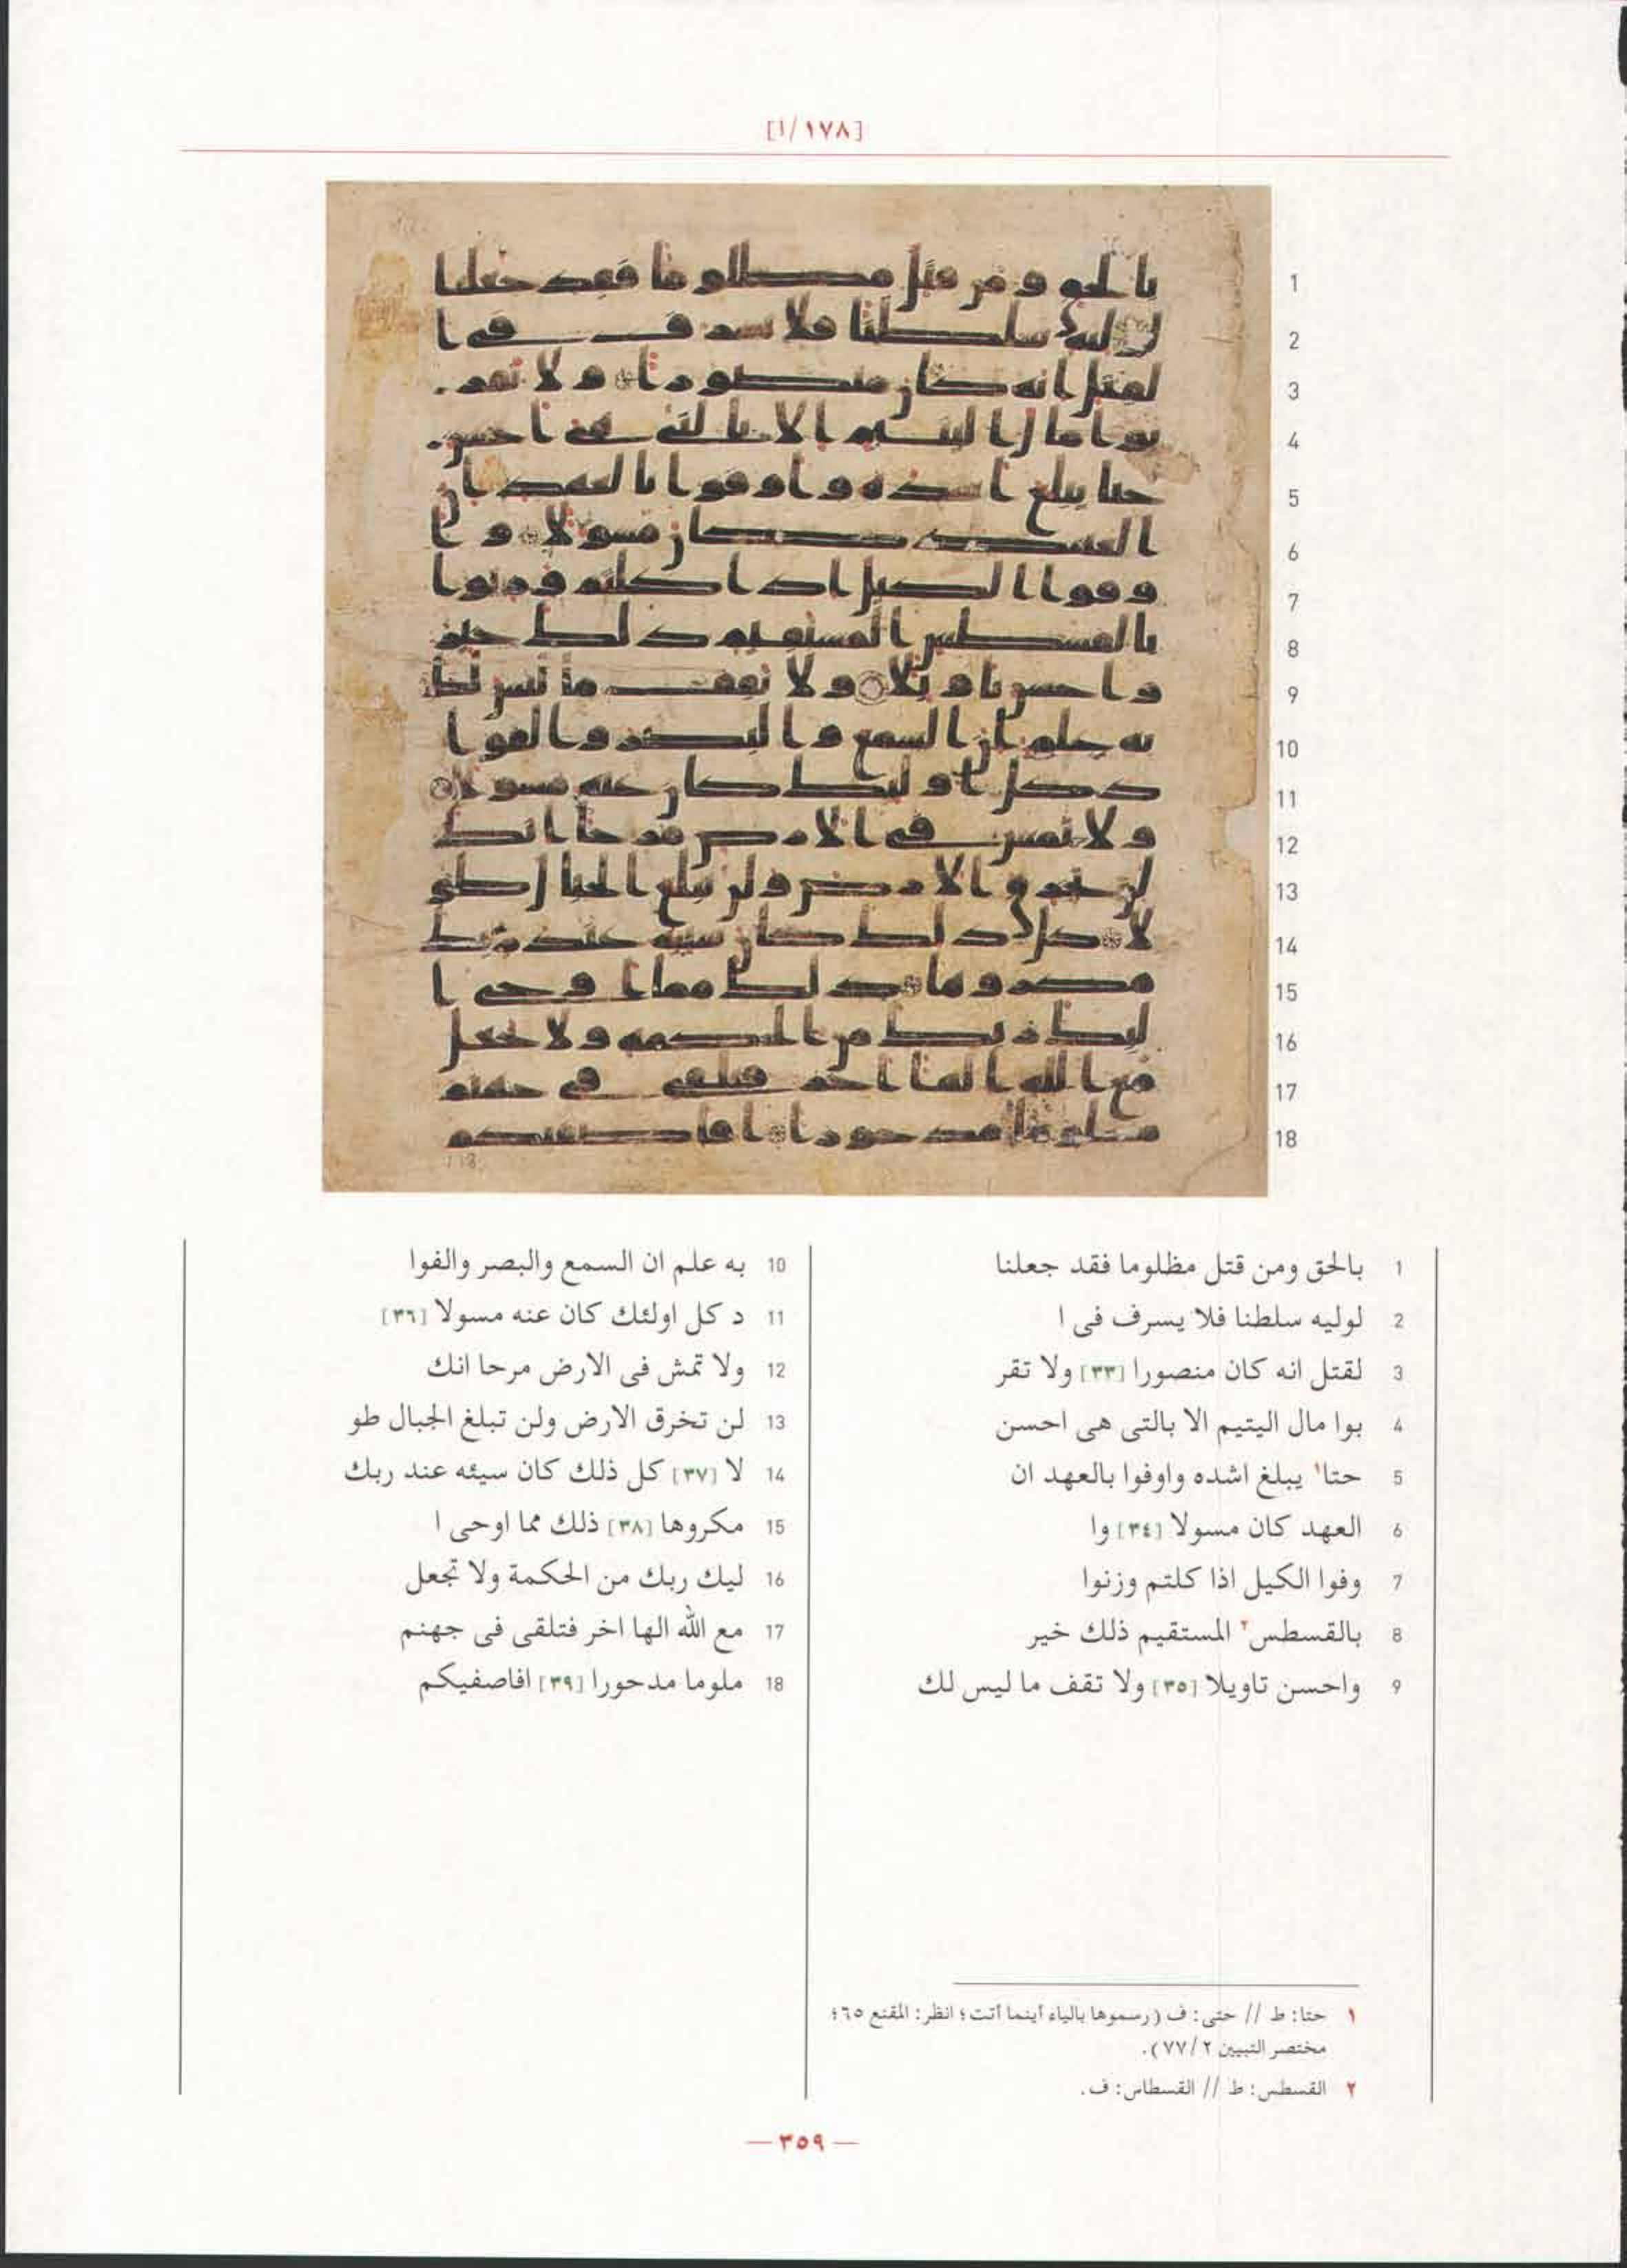 [١/١٧٨]
1 بالحق ومن قتل مظلوما فقد جعلنا
2 لوليه سلطنا فلا يسرف فى ا
3 لقتل انه كان منصورا [٣٣] ولا تقر
4 بوا مال اليتيم الا بالتى هى احسن
5 حتا١ يبلغ اشده واوفوا بالعهد ان
6 العهد كان مسولا [٣٤] وا
7 وفوا الكيل اذا كلتم وزنوا
8 بالقسطس٢ المستقيم ذلك خير
9 واحسن تاويلا [٣٥] ولا تقف ما ليس لك
10 به علم ان السمع والبصر والفوا
11 د كل اولئك كان عنه مسولا [٣٦]
12 ولا تمش فى الارض مرحا انك
13 لن تخرق الارض ولن تبلغ الجبال طو
14 لا [٣٧] كل ذلك كان سيئه عند ربك
15 مكروها [٣٨] ذلك مما اوحى ا
16 ليك ربك من الحكمة ولا تجعل
17 مع الله الها اخر فتلقى فى جهنم
18 ملوما مدحورا [٣٩] افاصفيكم
١ حتا: ط // حتى: ف (رسموها بالياء أينما أتت؛ انظر: المقنع ٦٥؛
مختصر التبيين ٢/٧٧).
٢ القسطس: ط // القسطاس: ف.
— ٣٥٩ —